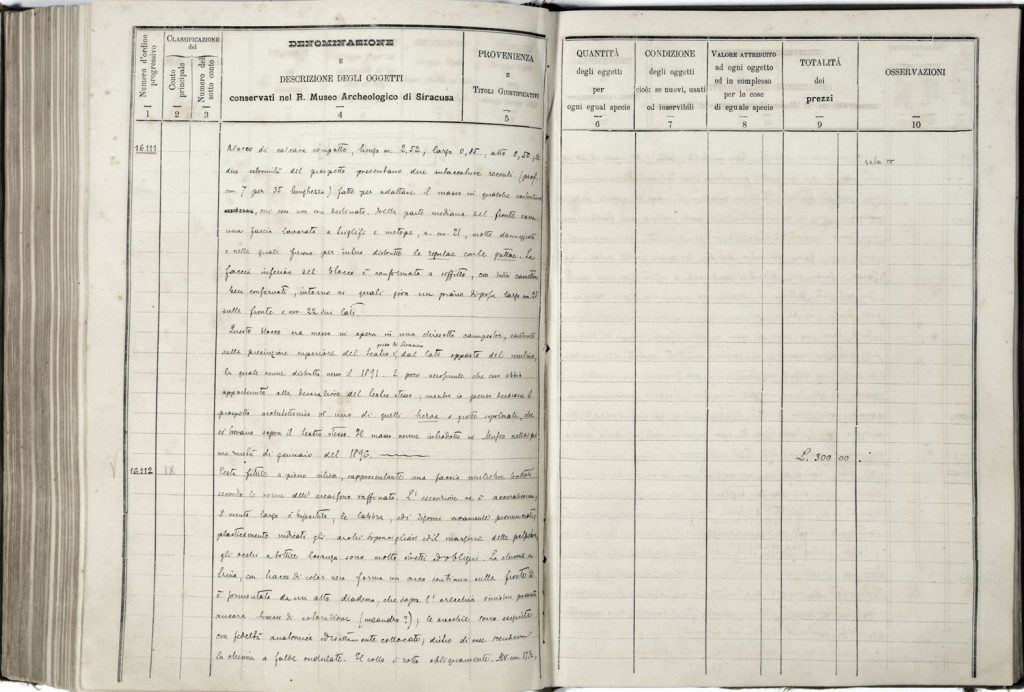 Numero d'ordine progressivo
CLASSIFICAZIONE
del
Conto principale
Numero del sotto conto
DENOMINAZIONE
E
DESCRIZIONE DEGLI OGGETTI
conservati nel R. Museo Archeologico di Siracusa
PROVENIENZA
E
TITOLI GIUSTIFICATIVI
1
2
3
4
5
16111
Blocco di calcare compatto, lungo m. 2,52, largo 0,85, alto 0,50, le
due estremità del prospetto presentano due intaccature recenti (prof.
cm. 7 per 35 lunghezza) fatte per adattare il masso in qualche
cui esso non era destinato. Nella parte mediana del fronte corre
una fascia lavorata a triglifi e metope, a. cm. 21, molto danneggiata
e nella quale furono per intero distrutte le regulae con le guttae. La
faccia inferiore del blocco è conformata a soffitto, con
ben conservati, intorno ai quali gira un piano di posa largo cm 25
sulla fronte e cm. 22 sui lati
Questo blocco era messo in opera in una chiesetta campestre, esistente
sulla precinzione superiore del teatro greco di Siracusa, dal lato opposto del mulino,
la quale venne distrutta verso il 1891. È poco verosimile che esso abbia
appartenuto alla decorazione del teatro stesso, mentre io penso decorasse il
prospetto architettonico di uno di quelli heroa o grotte sepolcrali, che
si trovano sopra il teatro stesso. Il masso venne introdotto in Museo nella
metà di gennaio del 1896.
16112
IX
Testa fittile a pieno rilievo, rappresentante una faccia muliebre trattata
secondo le norme dell' arcaismo raffinato. L' esecuzione ne è accuratissima,
il mento largo è tripartito, le labbra, ed i zigomi vivamente pronunciati,
plasticamente indicati gli archi sopraccigliari ed il margine delle palpebre,
gli occhi a losanga sono molto stretti ed obliqui. La chioma a
con tracce di color roseo forma un arco continuo sulla fronte ed
è sormontata da un alto diadema, che sopra l' orecchia sinistra presenta
ancora tracce di colorazione (meandro?); le orecchie sono eseguite
con fedeltà anatomica ed esattamente collocate; dietro di esse scendeva
la chioma a falde ondulate. Il collo è rotto obliquamente. Alt. cm. 17½,
QUANTITÀ
degli oggetti
per
ogni egual specie
CONDIZIONE
degli oggetti
cioè: se nuovi, usati
od inservibili
VALORE ATTRIBUITO
ad ogni oggetto
ed in complesso
per le cose
di eguale specie
TOTALITÀ
dei
prezzi
OSSERVAZIONI
6
7
8
9
10
L. 300 00